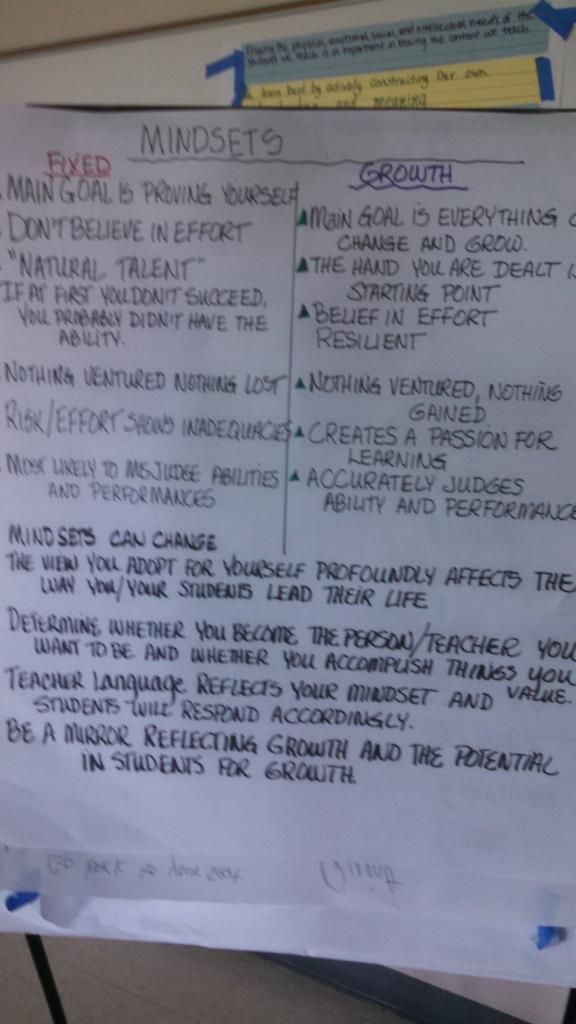 physical, emotional, social, and intellectual needs of the
students we teach is as important as knowing the content we teach.
learn best by actively constructing our own
and meaning
MINDSETS
FIXED
MAIN GOAL IS PROVING YOURSELF
DON'T BELIEVE IN EFFORT
"NATURAL TALENT"
IF AT FIRST YOU DON'T SUCCEED,
YOU PROBABLY DIDN'T HAVE THE
ABILITY.
NOTHING VENTURED NOTHING LOST
RISK/EFFORT SHOWS INADEQUACIES
MOST LIKELY TO MISJUDGE ABILITIES
AND PERFORMANCES
GROWTH
MAIN GOAL IS EVERYTHING C
CHANGE AND GROW.
THE HAND YOU ARE DEALT I
STARTING POINT
BELIEF IN EFFORT
RESILIENT
NOTHING VENTURED, NOTHING
GAINED
CREATES A PASSION FOR
LEARNING
ACCURATELY JUDGES
ABILITY AND PERFORMANCE
MINDSETS CAN CHANGE
THE VIEW YOU ADOPT FOR YOURSELF PROFOUNDLY AFFECTS THE
WAY YOU/YOUR STUDENTS LEAD THEIR LIFE
DETERMINE WHETHER YOU BECOME THE PERSON/TEACHER YOU
WANT TO BE AND WHETHER YOU ACCOMPLISH THINGS YOU
VALUE.
TEACHER Language REFLECTS YOUR MINDSET AND
STUDENTS WILL RESPOND ACCORDINGLY.
BE A MIRROR REFLECTING GROWTH AND THE POTENTIAL
IN STUDENTS FOR GROWTH.